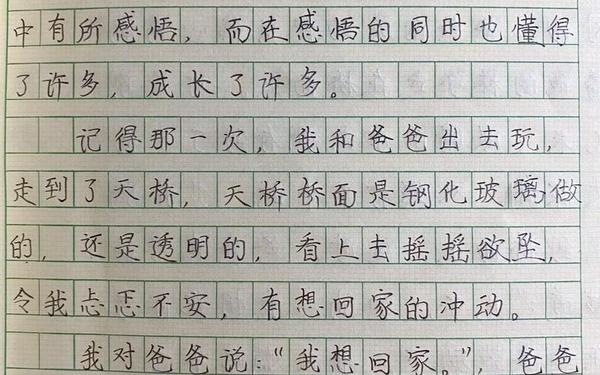 中有所感悟，而在感悟的同时也懂得
了许多，成长了许多。
记得那一次，我和爸爸出去玩，
走到了天桥，天桥桥面是钢化玻璃做
的，还是透明的，看上去摇摇欲坠，
令我忐忑不安，有想回家的冲动。
我对爸爸说：“我想回家。”，爸爸